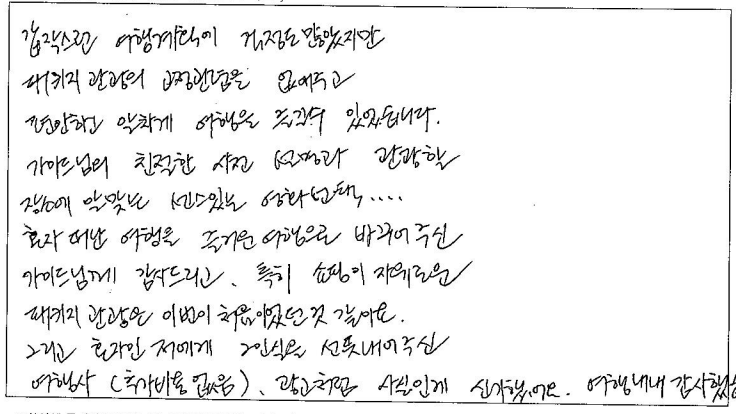 갑작스런 여행계획이 걱정도 많았지만
패키지 관광의 고정관념을 없애주고
편안하고 알차게 여행을 즐길수 있었답니다.
가이드님의 친절한 사전 설명과 관광할
장소에 알맞는 센스있는 영화선택....
혼자 떠난 여행을 즐거운 여행으로 바꾸어주신
가이드님께 감사드리고, 특히 쇼핑이 자유로운
패키지 관광은 이번이 처음이었던것 같아요.
그리고 혼자인 저에게 2인실을 선뜻내어주신
여행사 (추가비용 없음), 광고처럼 사실인게 신기했어요. 여행내내 감사했